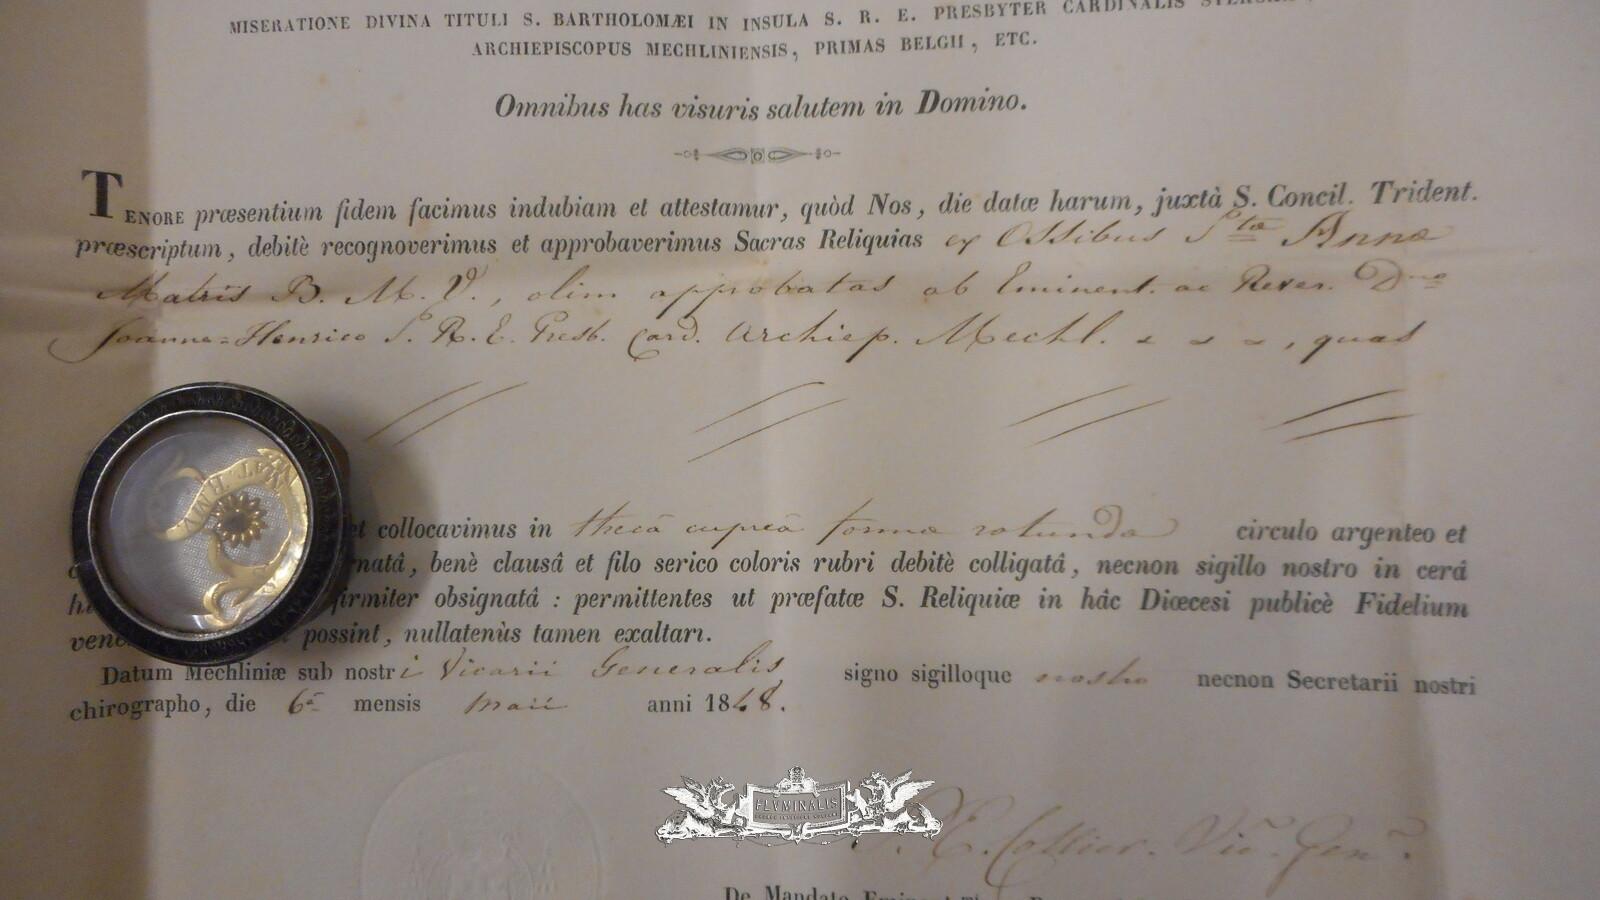 MISERATIONE DIVINA TITULI S. BARTHOLOMÆI IN INSULA S. R. E. PRESBYTER CARDINALIS
ARCHIEPISCOPUS MECHLINIENSIS, PRIMAS BELGII, ETC.
Omnibus has visuris salutem in Domino.
TENORE præsentium fidem facimus indubiam et attestamur, quòd Nos, die datæ harum, juxtà S. Concil. Trident.
præscriptum, debitè recognoverimus et approbaverimus Sacras Reliquias ex Ossibus Stæ Annæ
Matris B. M. V., olim approbatas ab Eminent. ac Rever. Dno
Joanne-Henrico S. R. E. Presb. Card. Archiep. Mechl. , quas
et collocavimus in thecâ cupreâ formæ rotundæ circulo argenteo et
rnatâ, benè clausâ et filo serico coloris rubri debitè colligatâ, necnon sigillo nostro in cerâ
firmiter obsignatâ : permittentes ut præfatæ S. Reliquiæ in hâc Diœcesi publicè Fidelium
vene possint, nullatenùs tamen exaltari.
Datum Mechliniæ sub nostri Vicarii Generalis signo sigilloque nostro necnon Secretarii nostri
chirographo, die 6â mensis Maii anni 1848.
FLVMINALIS
J. E. Collier. Vic. Gen.
De Mandato